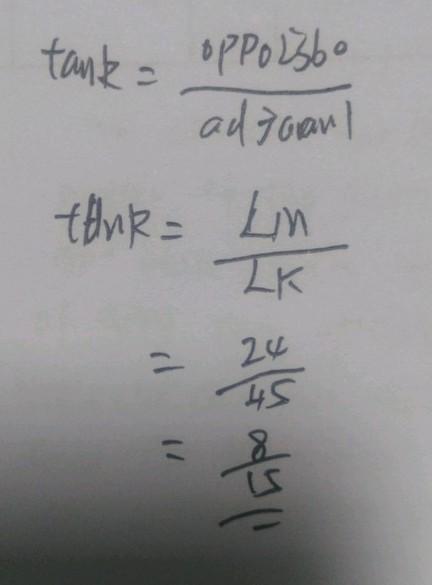 tank = oppo2360
ad7oan1
tank = LM
LK
= 24
45
= 8
15